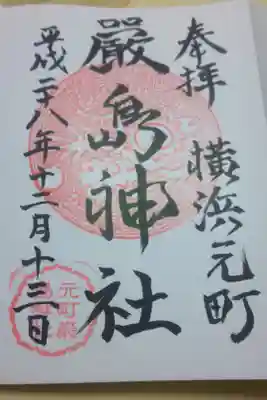 奉拝
横浜元町
厳島神社
平成二十八年十二月十三日